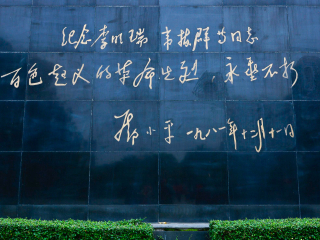 纪念李明瑞 韦拔群等同志
百色起义的革命先烈，永垂不朽
邓小平 一九八一年十二月十一日